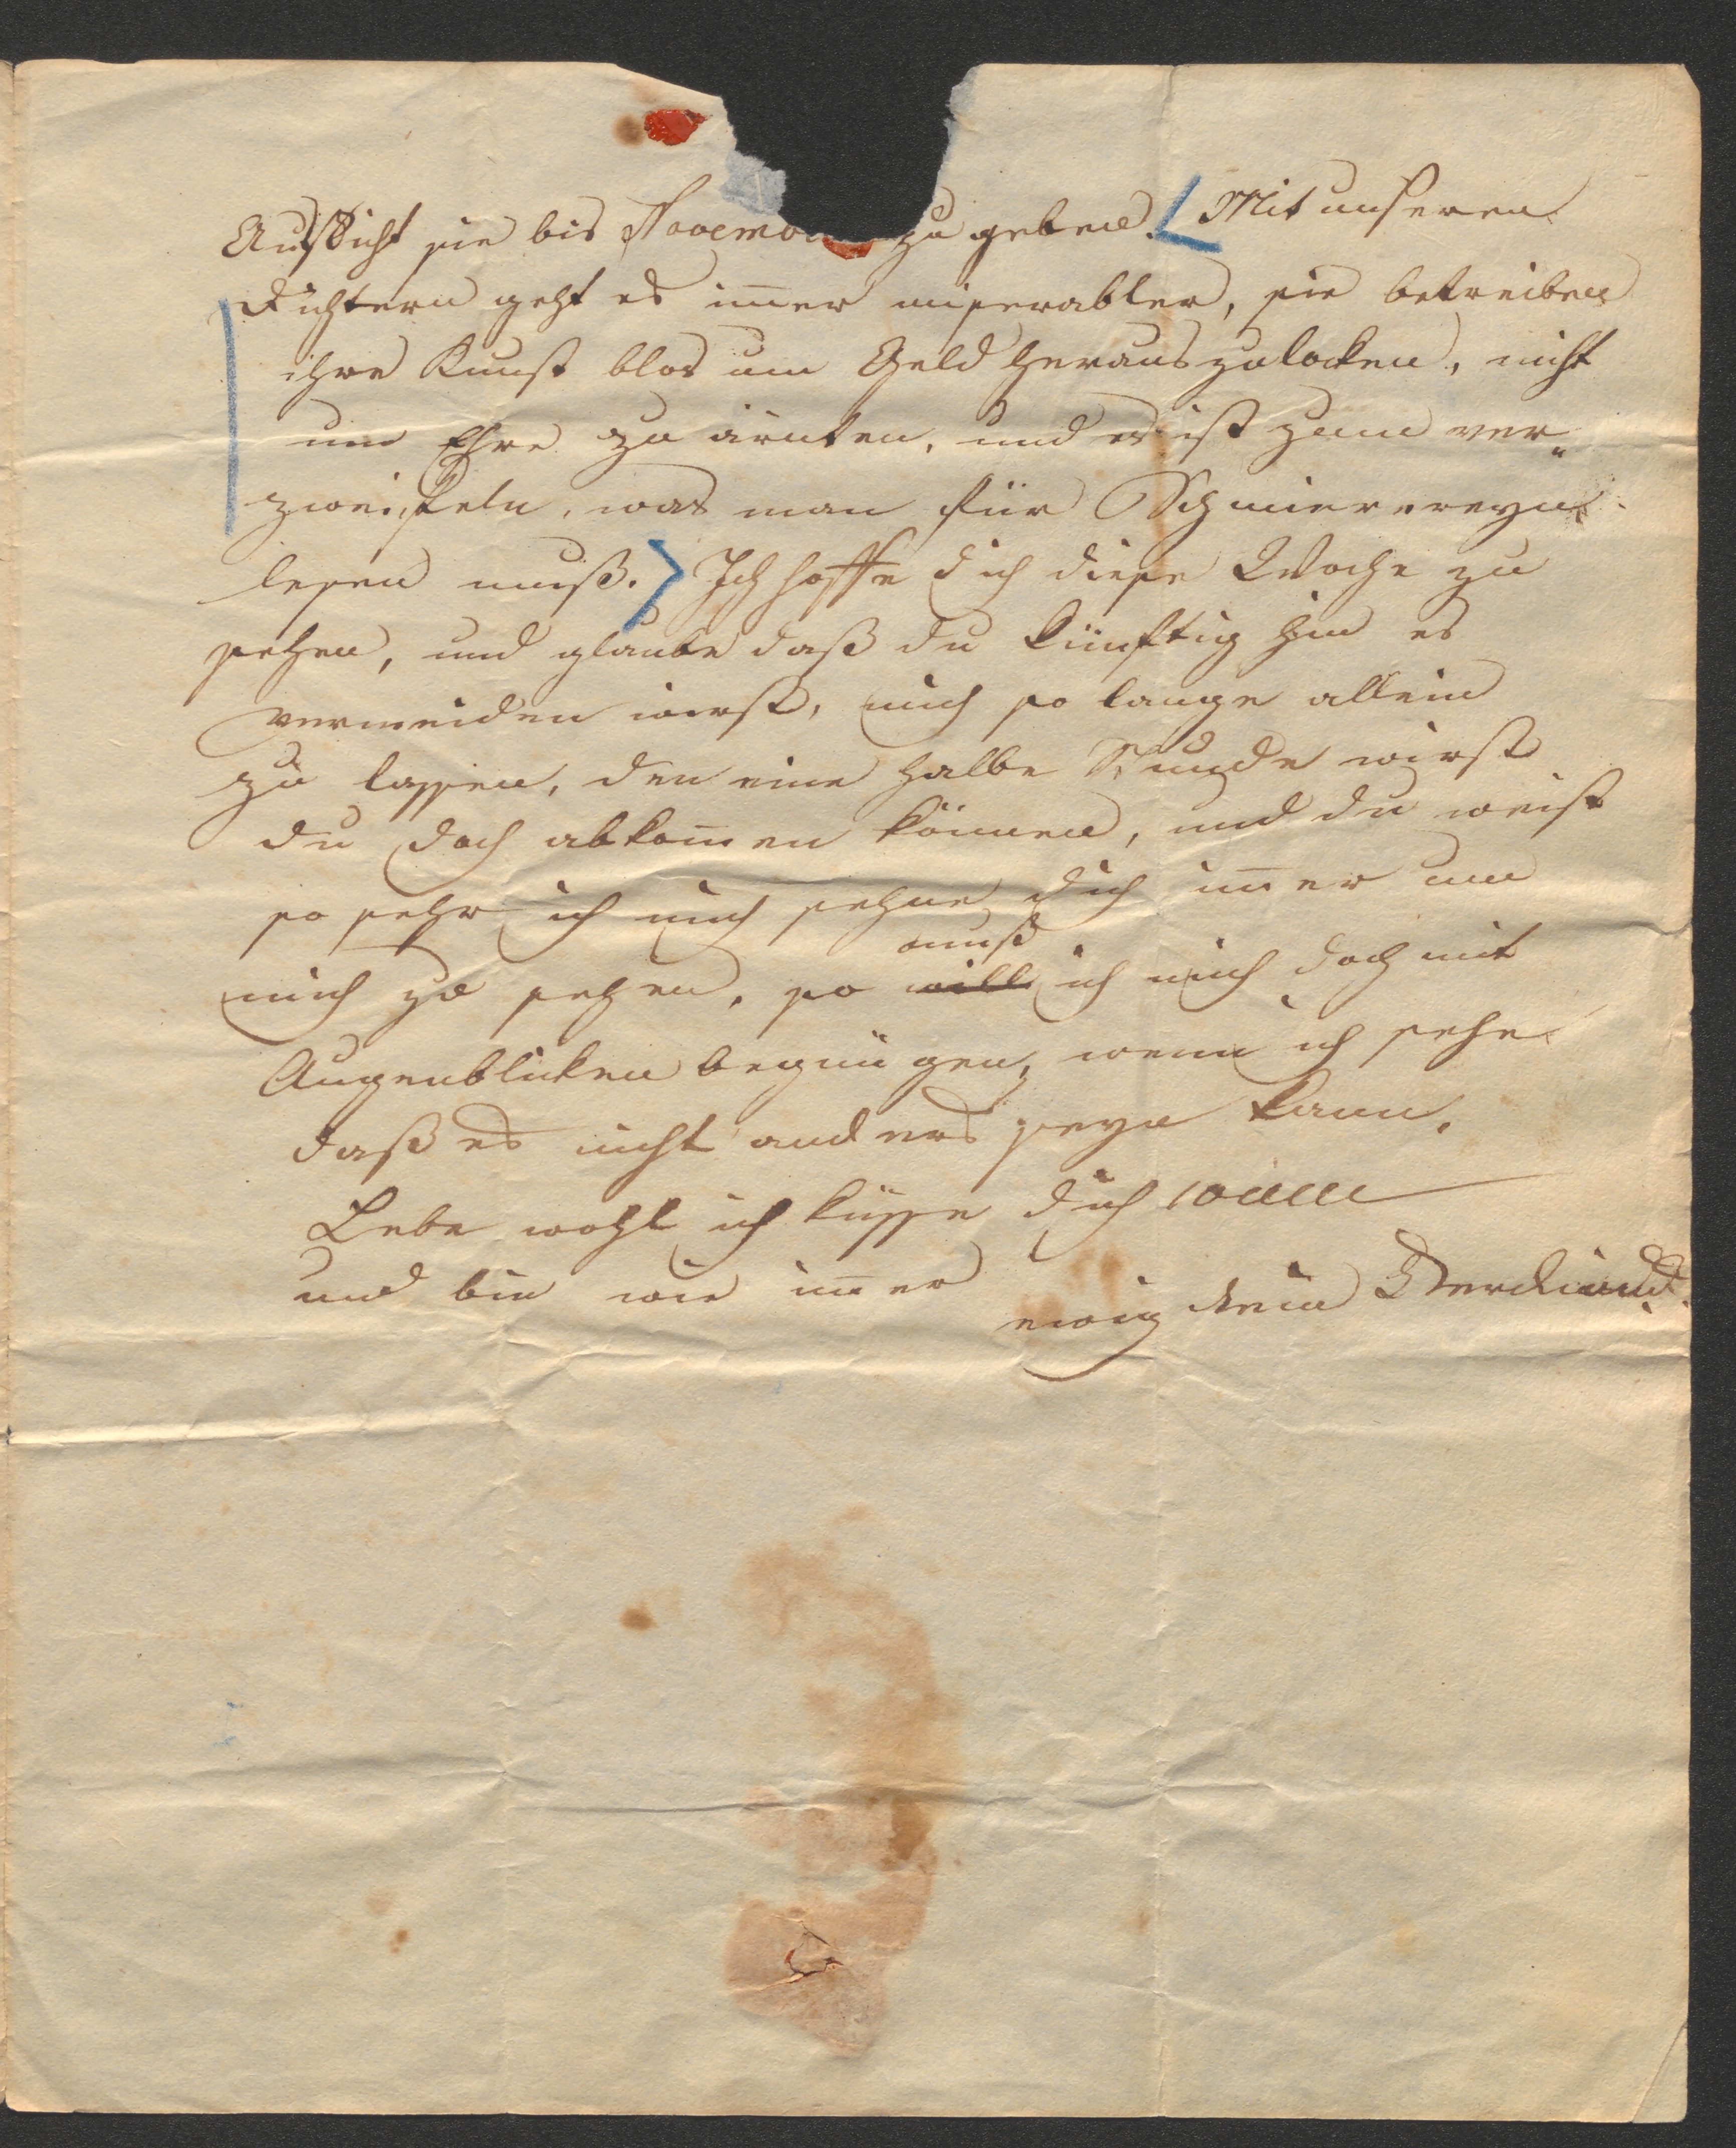 Aussicht sie bis Novem zu geben. Mit unseren
Dichtern geht es im̄er miserabler, sie betreiben
ihre Kunst blos um Geld herauszulocken, nicht
um Ehre zu ärnten, und es ist zum ver„
zweifeln, was man für Schmierereyn
lesen muß. Ich hoffe dich diese Woche zu
sehen, und glaube daß du künftig hin es
vermeiden wirst, mich so lange allein
zu lassen, den eine halbe Stunde wirst
du doch abkom̄en können, und du weist
so sehr ich mich sehne dich im̄er um
muß
mich zu sehen, so will ich mich doch mit
Augenblicken begnügen, wenn ich sehe
daß es nicht anders seyn kann.
Lebe wohl ich küsse dich
und bin wie im̄er ewig dein Ferdinand.